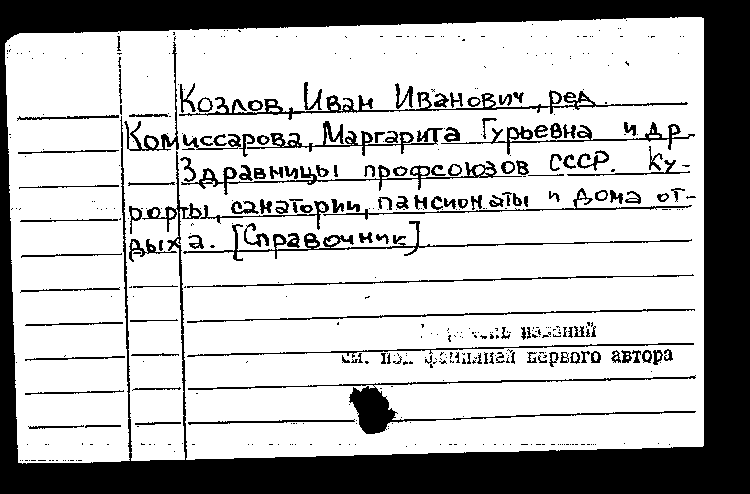 Козлов, Иван Иванович, ред.
Комиссарова, Маргарита Гурьевна и др.
Здравницы профсоюзов СССР. Ку-
рорты, санатории, пансионаты и дома от-
дыха. [Справочник]
изданий
см. под фамилией первого автора